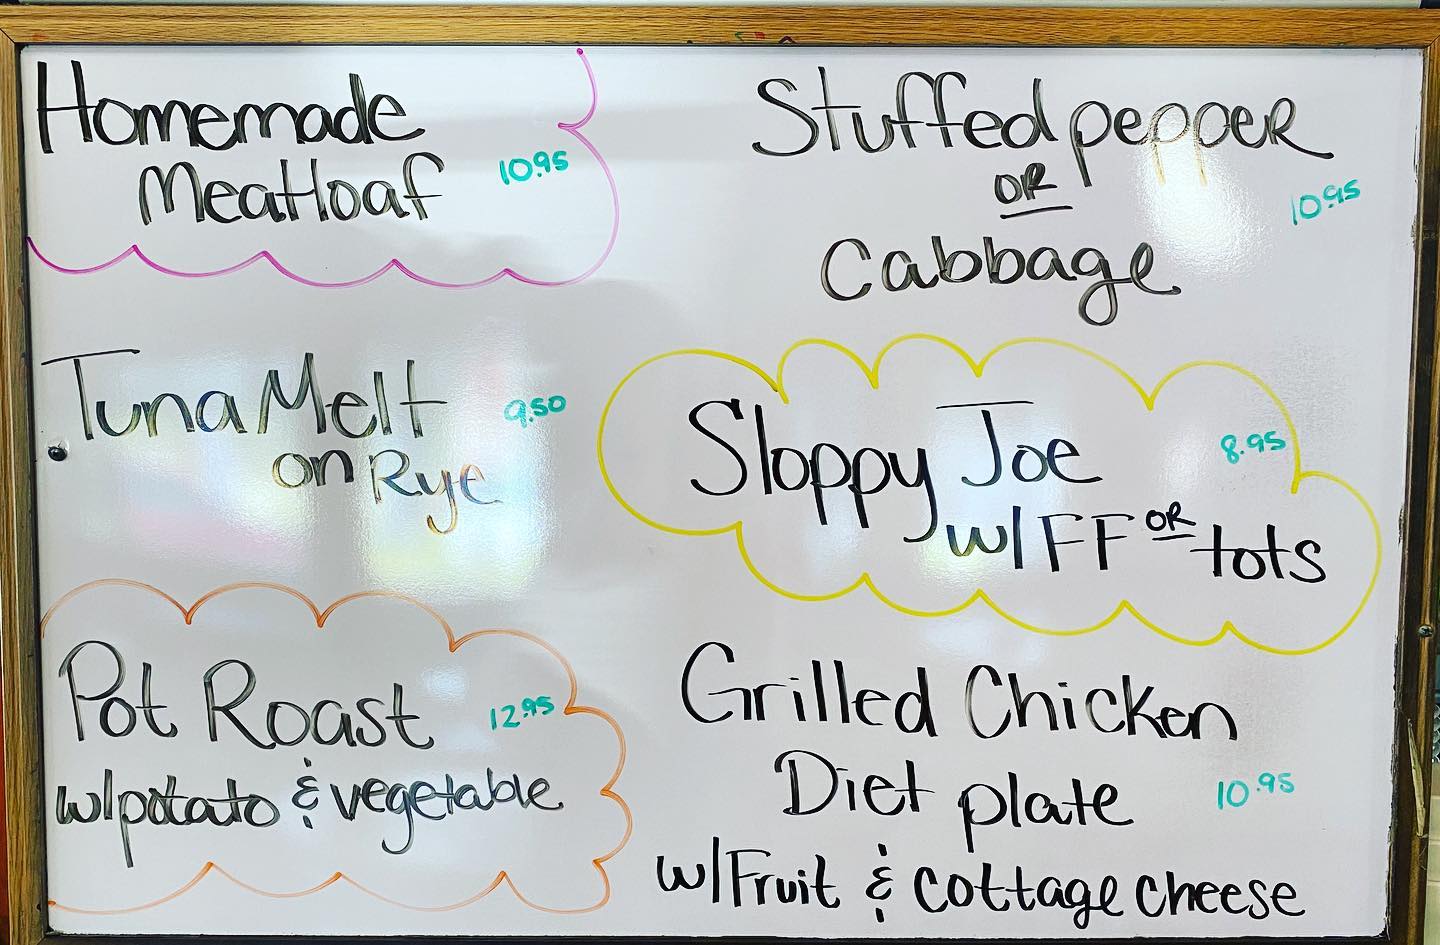 Homemade
Meatloaf 10.95
Stuffed pepper
OR
Cabbage 10.95
Tuna Melt 9.50
on Rye
Sloppy Joe 8.95
w/FF OR tots
Pot Roast 12.95
w/potato & vegetable
Grilled Chicken
Diet plate 10.95
w/Fruit & cottage cheese